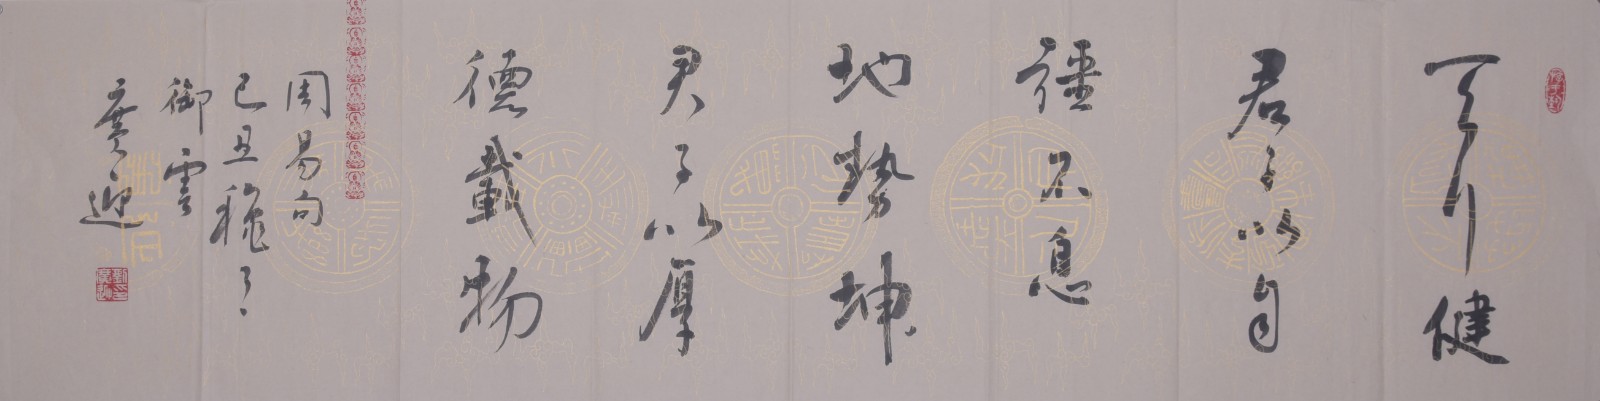 天行健
君子以自
彊不息
地势坤
君子以厚
德載物
周易句
己丑穐月
御雲
賡迎